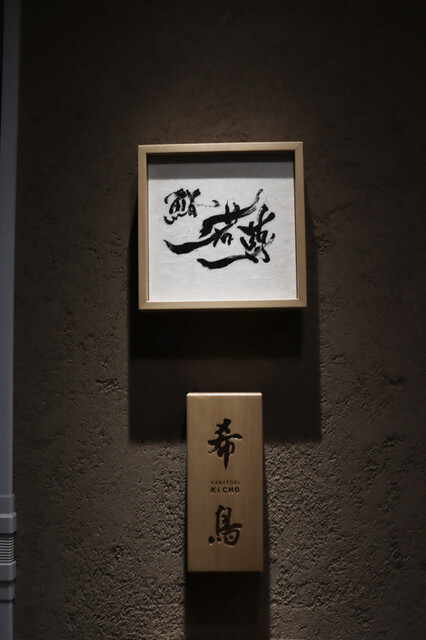 鮨
希
YAKITORI
KICHO
鳥